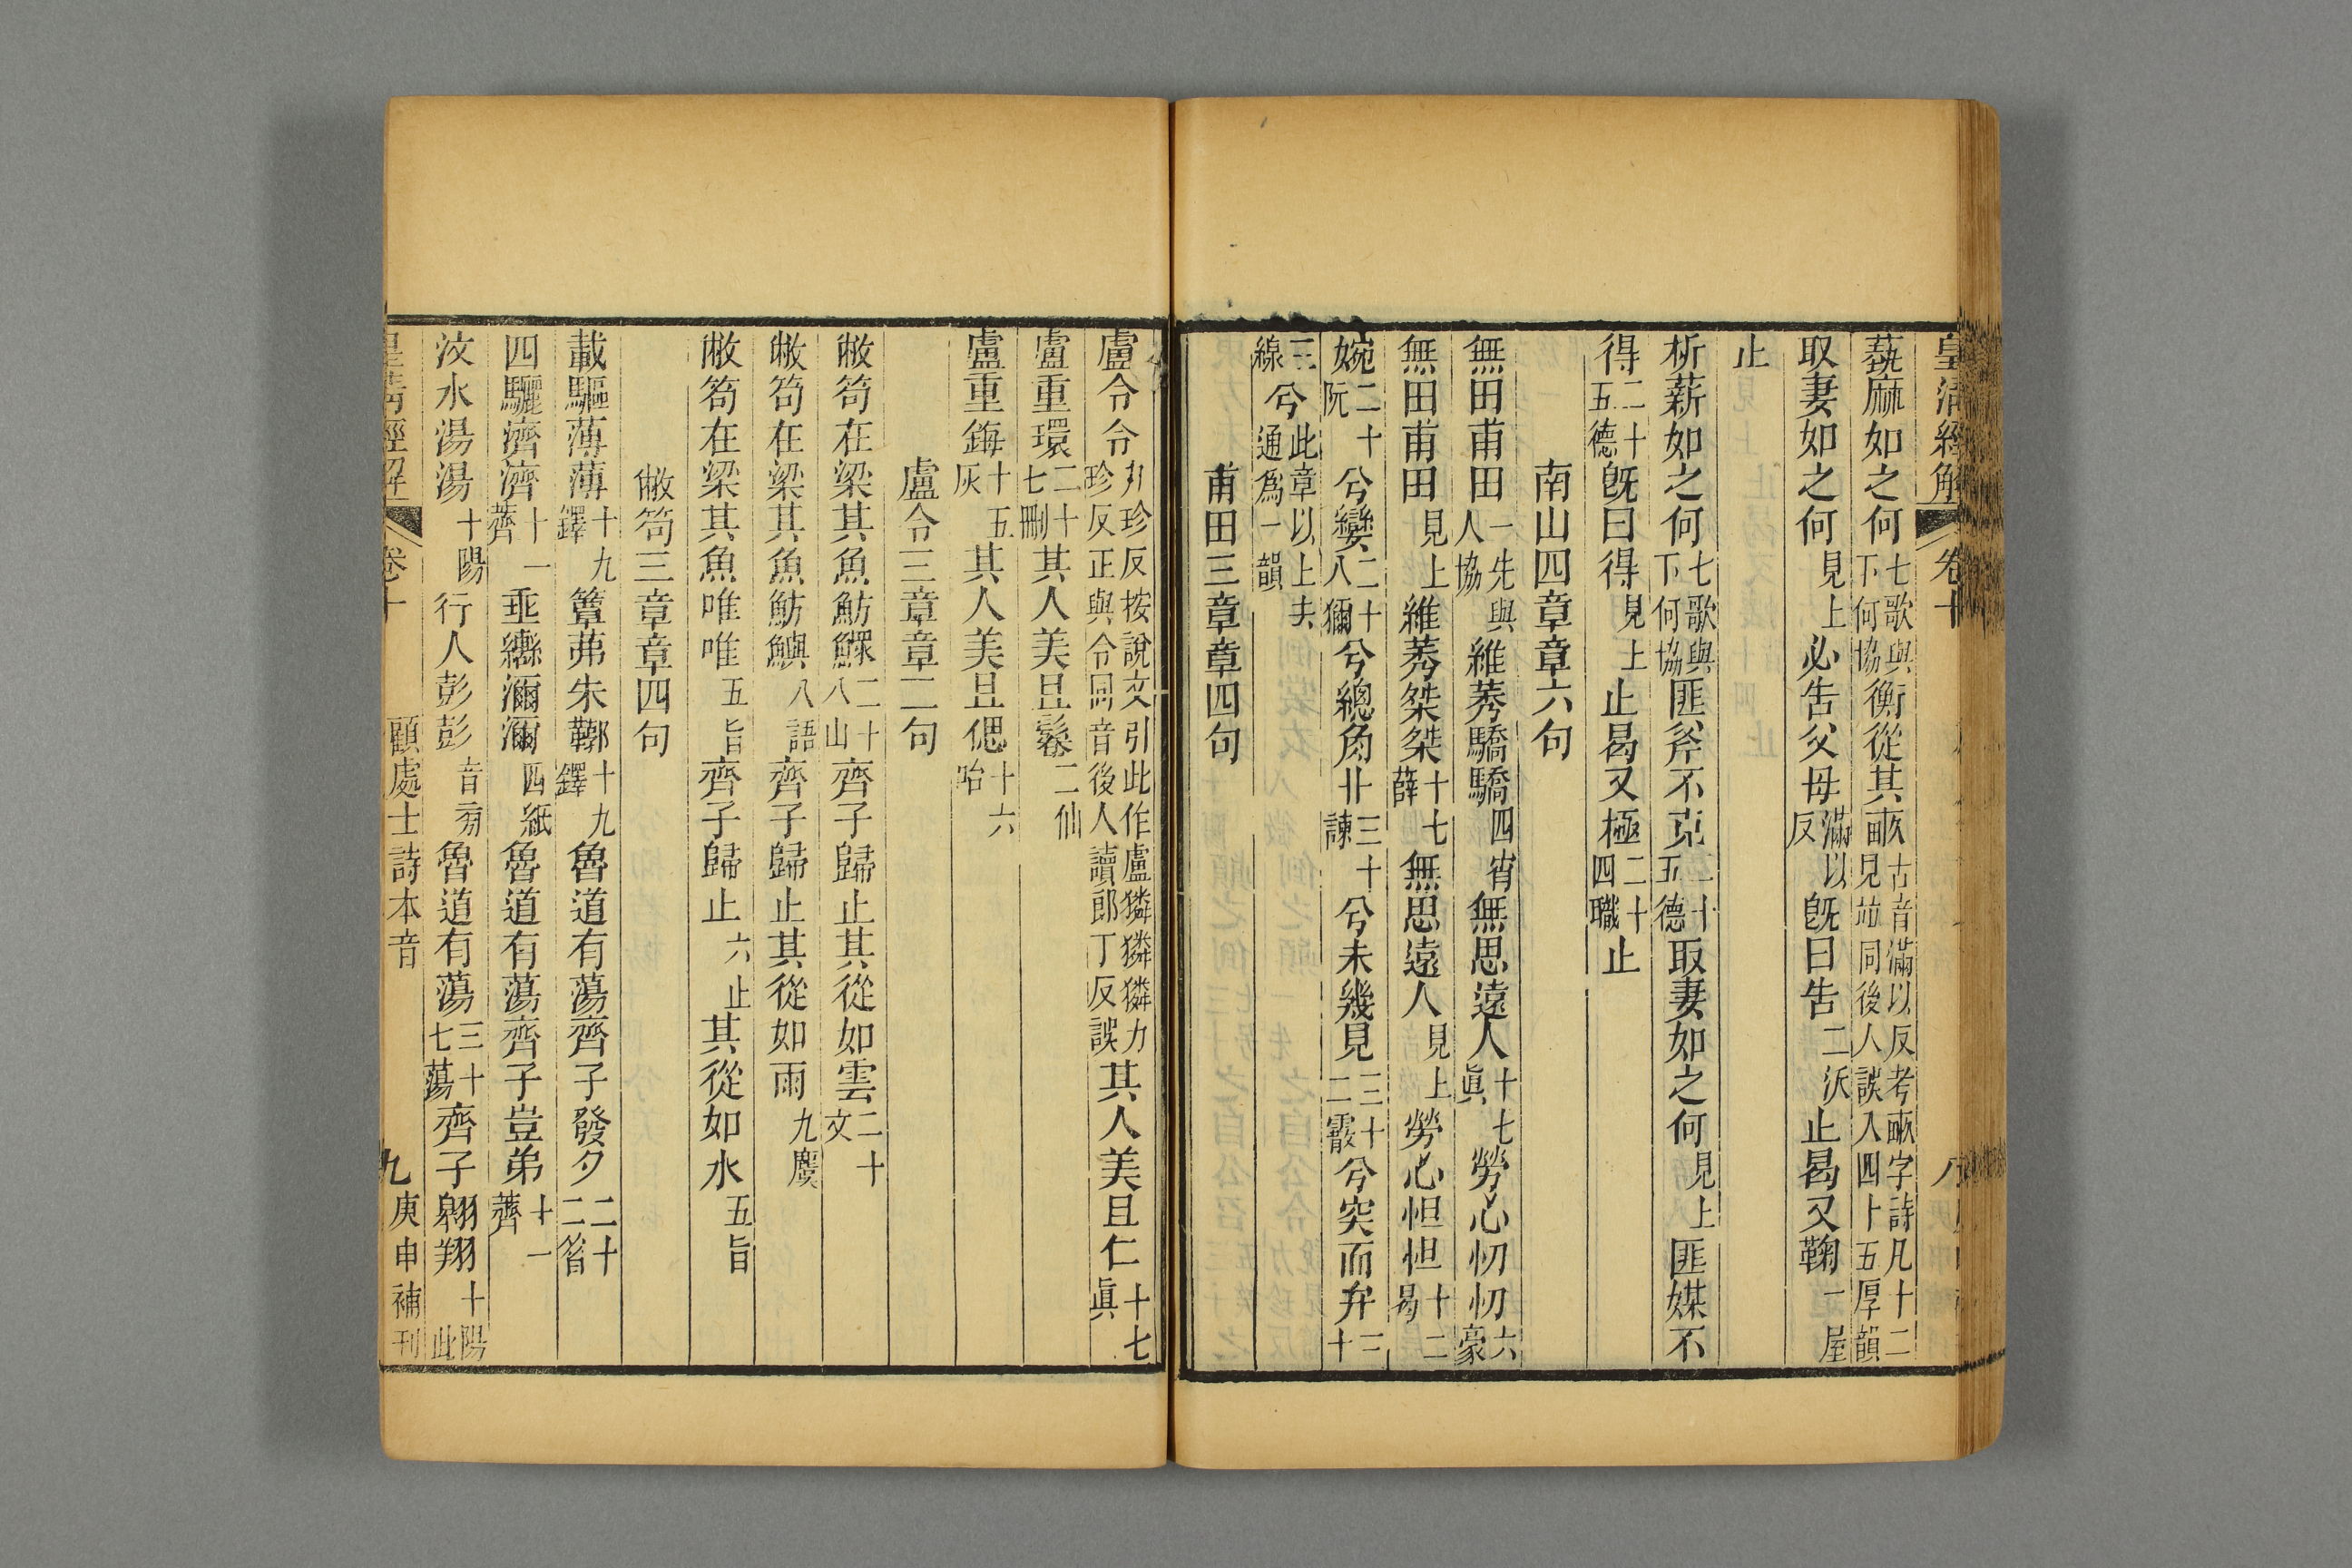 皇清經解 卷十 八
蓺麻如之何七歌與下何協衡從其畝古音滿以反考畝字詩凡十二見竝同後人誤入四十五厚韻
取妻如之何見上必告父母滿以反旣曰告二沃止曷又鞠一屋
止
析薪如之何七歌與下何協匪斧不克二十五德取妻如之何見上匪媒不
得二十五德旣曰得見上止曷又極二十四職止
南山四章章六句
無田甫田一先與人協維莠驕驕四宵無思遠人十七眞勞心忉忉六豪
無田甫田見上維莠桀桀十七薛無思遠人見上勞心怛怛十二曷
婉二十阮兮孌二十八獮兮總角丱三十諫兮未幾見三十二霰兮突而弁三十
三線兮此章以上去通爲一韻
甫田三章章四句
盧令令力珍反按說文引此作盧獜獜獜力珍反正與令同音後人讀郎丁反誤其人美且仁十七眞
盧重環二十七刪其人美且鬈二仙
盧重鋂十五灰其人美且偲十六咍
盧令三章章二句
敝笱在梁其魚魴鰥二十八山齊子歸止其從如雲二十文
敝笱在梁其魚魴鱮八語齊子歸止其從如雨九麌
敝笱在梁其魚唯唯五旨齊子歸止六止其從如水五旨
敝笱三章章四句
載驅薄薄十九鐸簟茀朱鞹十九鐸魯道有蕩齊子發夕二十二昔
四驪濟濟十一薺垂轡濔濔四紙魯道有蕩齊子豈弟十一薺
汶水湯湯十陽行人彭彭音旁魯道有蕩三十七蕩齊子翱翔十陽此
皇清經解 卷十 顧處士詩本音 九 庚申補刊